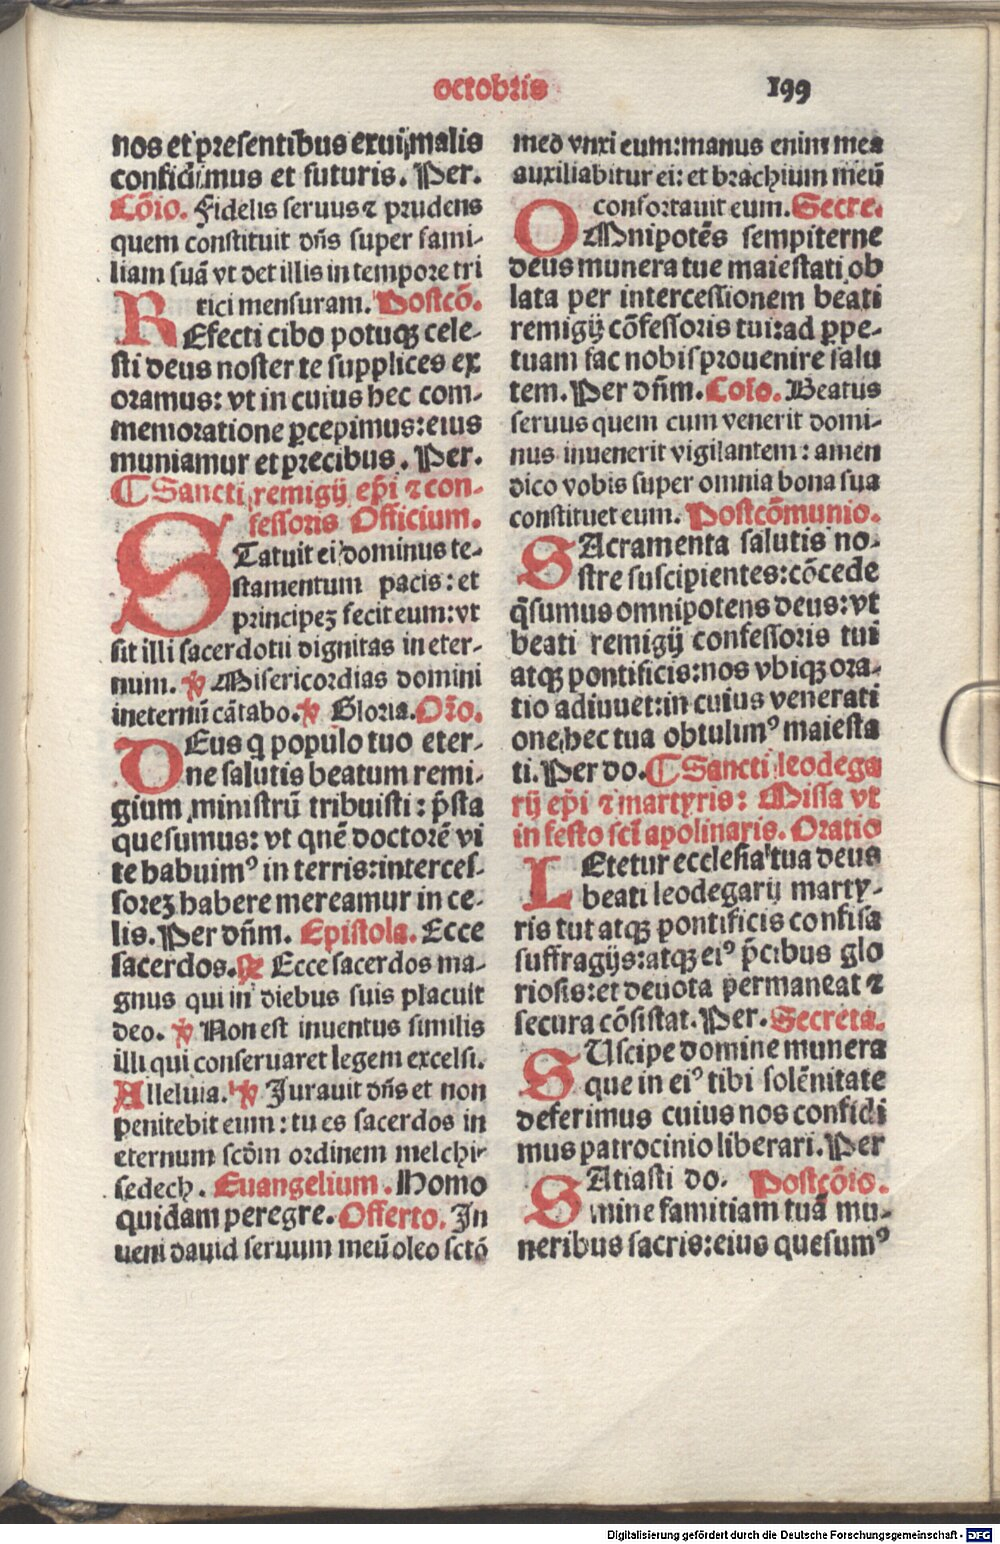 octobris 199
nos et presentibus exui malis
confidimus et futuris. Per.
Cōio. Fidelis seruus ⁊ prudens
quem constituit dn̄s super fami-
liam suā vt det illis in tempore tri
tici mensuram. Postcō.
REfecti cibo potuqꝫ cele-
sti deus noster te supplices ex
oramus: vt in cuius hec com-
memoratione ꝑcepimus: eius
muniamur et precibus. Per.
¶ Sancti remigij ep̄i ⁊ con-
fessoris Officium.
STatuit ei dominus te-
stamentum pacis: et
principeꝫ fecit eum: vt
sit illi sacerdotii dignitas in eter-
num. ℣ Misericordias domini
ineternū cātabo. ℣ Gloria. Or̄o.
DEus q̄ populo tuo eter-
ne salutis beatum remi-
gium ministrū tribuisti: p̄sta
quesumus: vt quē doctorē vi
te habuimꝰ in terris: interces-
soreꝫ habere mereamur in ce-
lis. Per dn̄m. Epistola. Ecce
sacerdos. ℟ Ecce sacerdos ma-
gnus qui in diebus suis placuit
deo. ℣ Non est inuentus similis
illi qui conseruaret legem excelsi.
Alleluia. ℣ Jurauit dn̄s et non
penitebit eum: tu es sacerdos in
eternum scd̄m ordinem melchi-
sedech. Euangelium. Homo
quidam peregre. Offerto. In
ueni dauid seruum meū oleo sctō
meo vnxi eum: manus enim mea
auxiliabitur ei: et brachium meū
confortauit eum. Secre.
OMnipotēs sempiterne
deus munera tue maiestati ob
lata per intercessionem beati
remigij cōfessoris tui: ad ꝑpe-
tuam fac nobis prouenire salu
tem. Per dn̄m. Coīo. Beatus
seruus quem cum venerit domi-
nus inuenerit vigilantem: amen
dico vobis super omnia bona sua
constituet eum. Postcōmunio.
SAcramenta salutis no-
stre suscipientes: cōcede
q̄sumus omnipotens deus: vt
beati remigij confessoris tui
atqꝫ pontificis: nos vbiqꝫ ora-
tio adiuuet: in cuius venerati
one hec tua obtulimꝰ maiesta
ti. Per do. ¶ Sancti leodega
rij ep̄i ⁊ martyris: Missa vt
in festo scī apolinaris. Oratio
LEtetur ecclesia tua deus
beati leodegarij marty-
ris tui atqꝫ pontificis confisa
suffragijs: atqꝫ eiꝰ p̄cibus glo
riosis: et deuota permaneat ⁊
secura cōsistat. Per. Secreta.
SUscipe domine munera
que in eiꝰ tibi solēnitate
deferimus cuius nos confidi
mus patrocinio liberari. Per
SAtiasti do. Postcōio.
mine familiam tuā mu-
neribus sacris: eius quesumꝰ
Digitalisierung gefördert durch die Deutsche Forschungsgemeinschaft - DFG